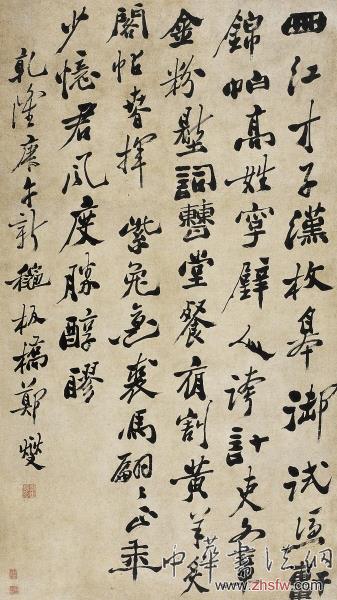 西江才子漢枚皋御試
錦帕高姓字壁人誇計吏
金粉詞曹堂餐夜割黃羊炙
閣帖春揮紫兔毫裘馬翩翩正年
少憶君風度勝醇醪
乾隆庚午新秋板橋鄭燮
中華書法網
www.zhsfw.com